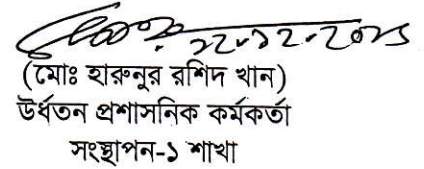 ২২-১২-২০২১
(মোঃ হারুনুর রশিদ খান)
উর্ধতন প্রশাসনিক কর্মকর্তা
সংস্থাপন-১ শাখা